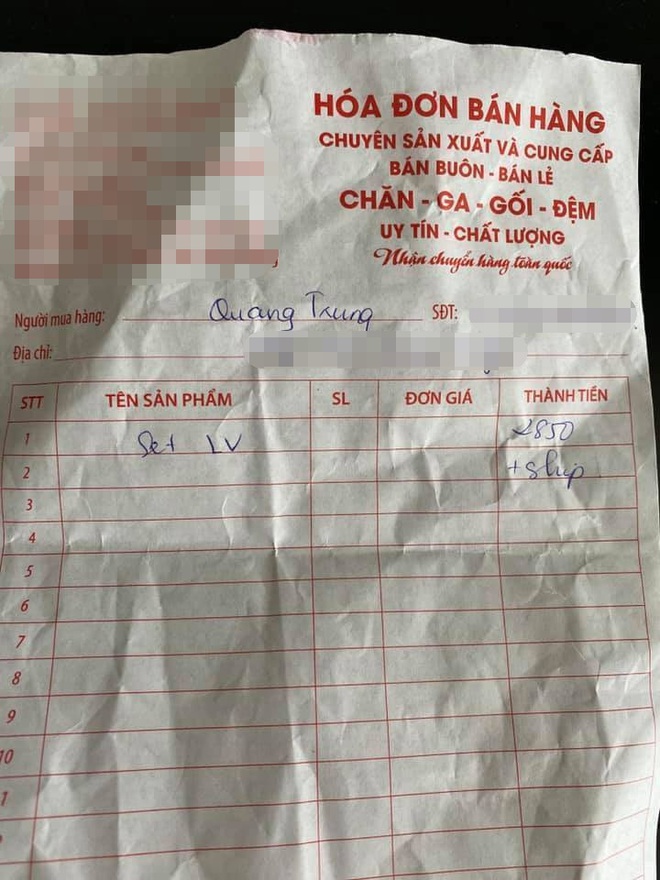 HÓA ĐƠN BÁN HÀNG
CHUYÊN SẢN XUẤT VÀ CUNG CẤP
BÁN BUÔN - BÁN LẺ
CHĂN - GA - GỐI - ĐỆM
UY TÍN - CHẤT LƯỢNG
Nhận chuyển hàng toàn quốc
Người mua hàng: Quang Trung SĐT:
Địa chỉ:
STT TÊN SẢN PHẨM SL ĐƠN GIÁ THÀNH TIỀN
1 Set LV 2850
2 + ship
3
4
5
6
7
8
9
10